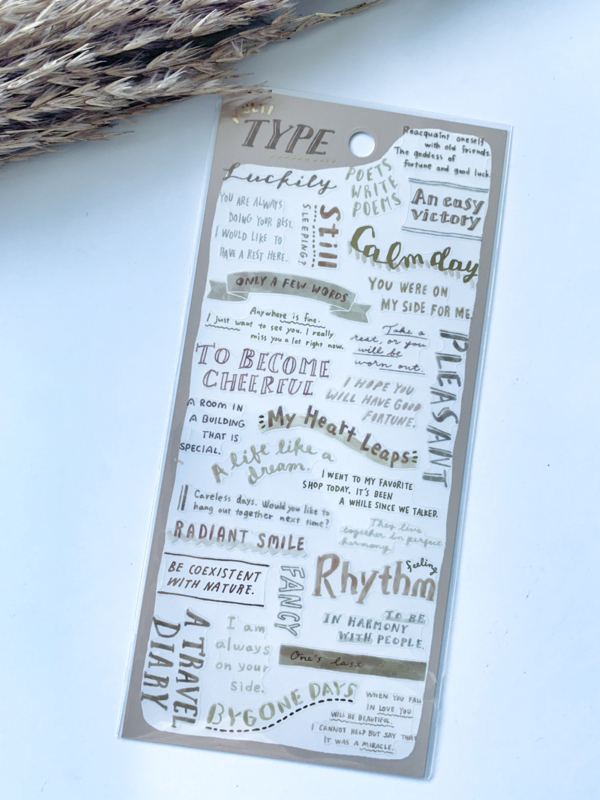 TYPE
Reacquaint oneself
with old friends.
The goddess of
fortune and good luck.
Luckily
POETS
WRITE
POEMS
An easy
victory
YOU ARE ALWAYS
DOING YOUR BEST.
I WOULD LIKE TO
HAVE A REST HERE.
SLEEPING?
Still
Calm day
ONLY A FEW WORDS
YOU WERE ON
MY SIDE FOR ME.
Anywhere is fine.
I just want to see you. I really
miss you a lot right now.
Take a
rest, or you
will be
worn out.
PLEASANT
TO BECOME
CHEERFUL
I HOPE YOU
WILL HAVE GOOD
FORTUNE.
A ROOM IN
A BUILDING
THAT IS
SPECIAL.
My Heart Leaps
A life like a
dream.
I WENT TO MY FAVORITE
SHOP TODAY. IT'S BEEN
A WHILE SINCE WE TALKED.
Careless days. Would you like to
hang out together next time?
They live
together in perfect
harmony.
RADIANT SMILE
BE COEXISTENT
WITH NATURE.
FANCY
feeling
Rhythm
TO BE
IN HARMONY
WITH PEOPLE.
A TRAVEL
DIARY
I am
always
on your
side.
One's last
BYGONE DAYS
WHEN YOU FALL
IN LOVE YOU
WILL BE BEAUTIFUL.
I CANNOT HELP BUT SAY THAT
IT WAS A MIRACLE.